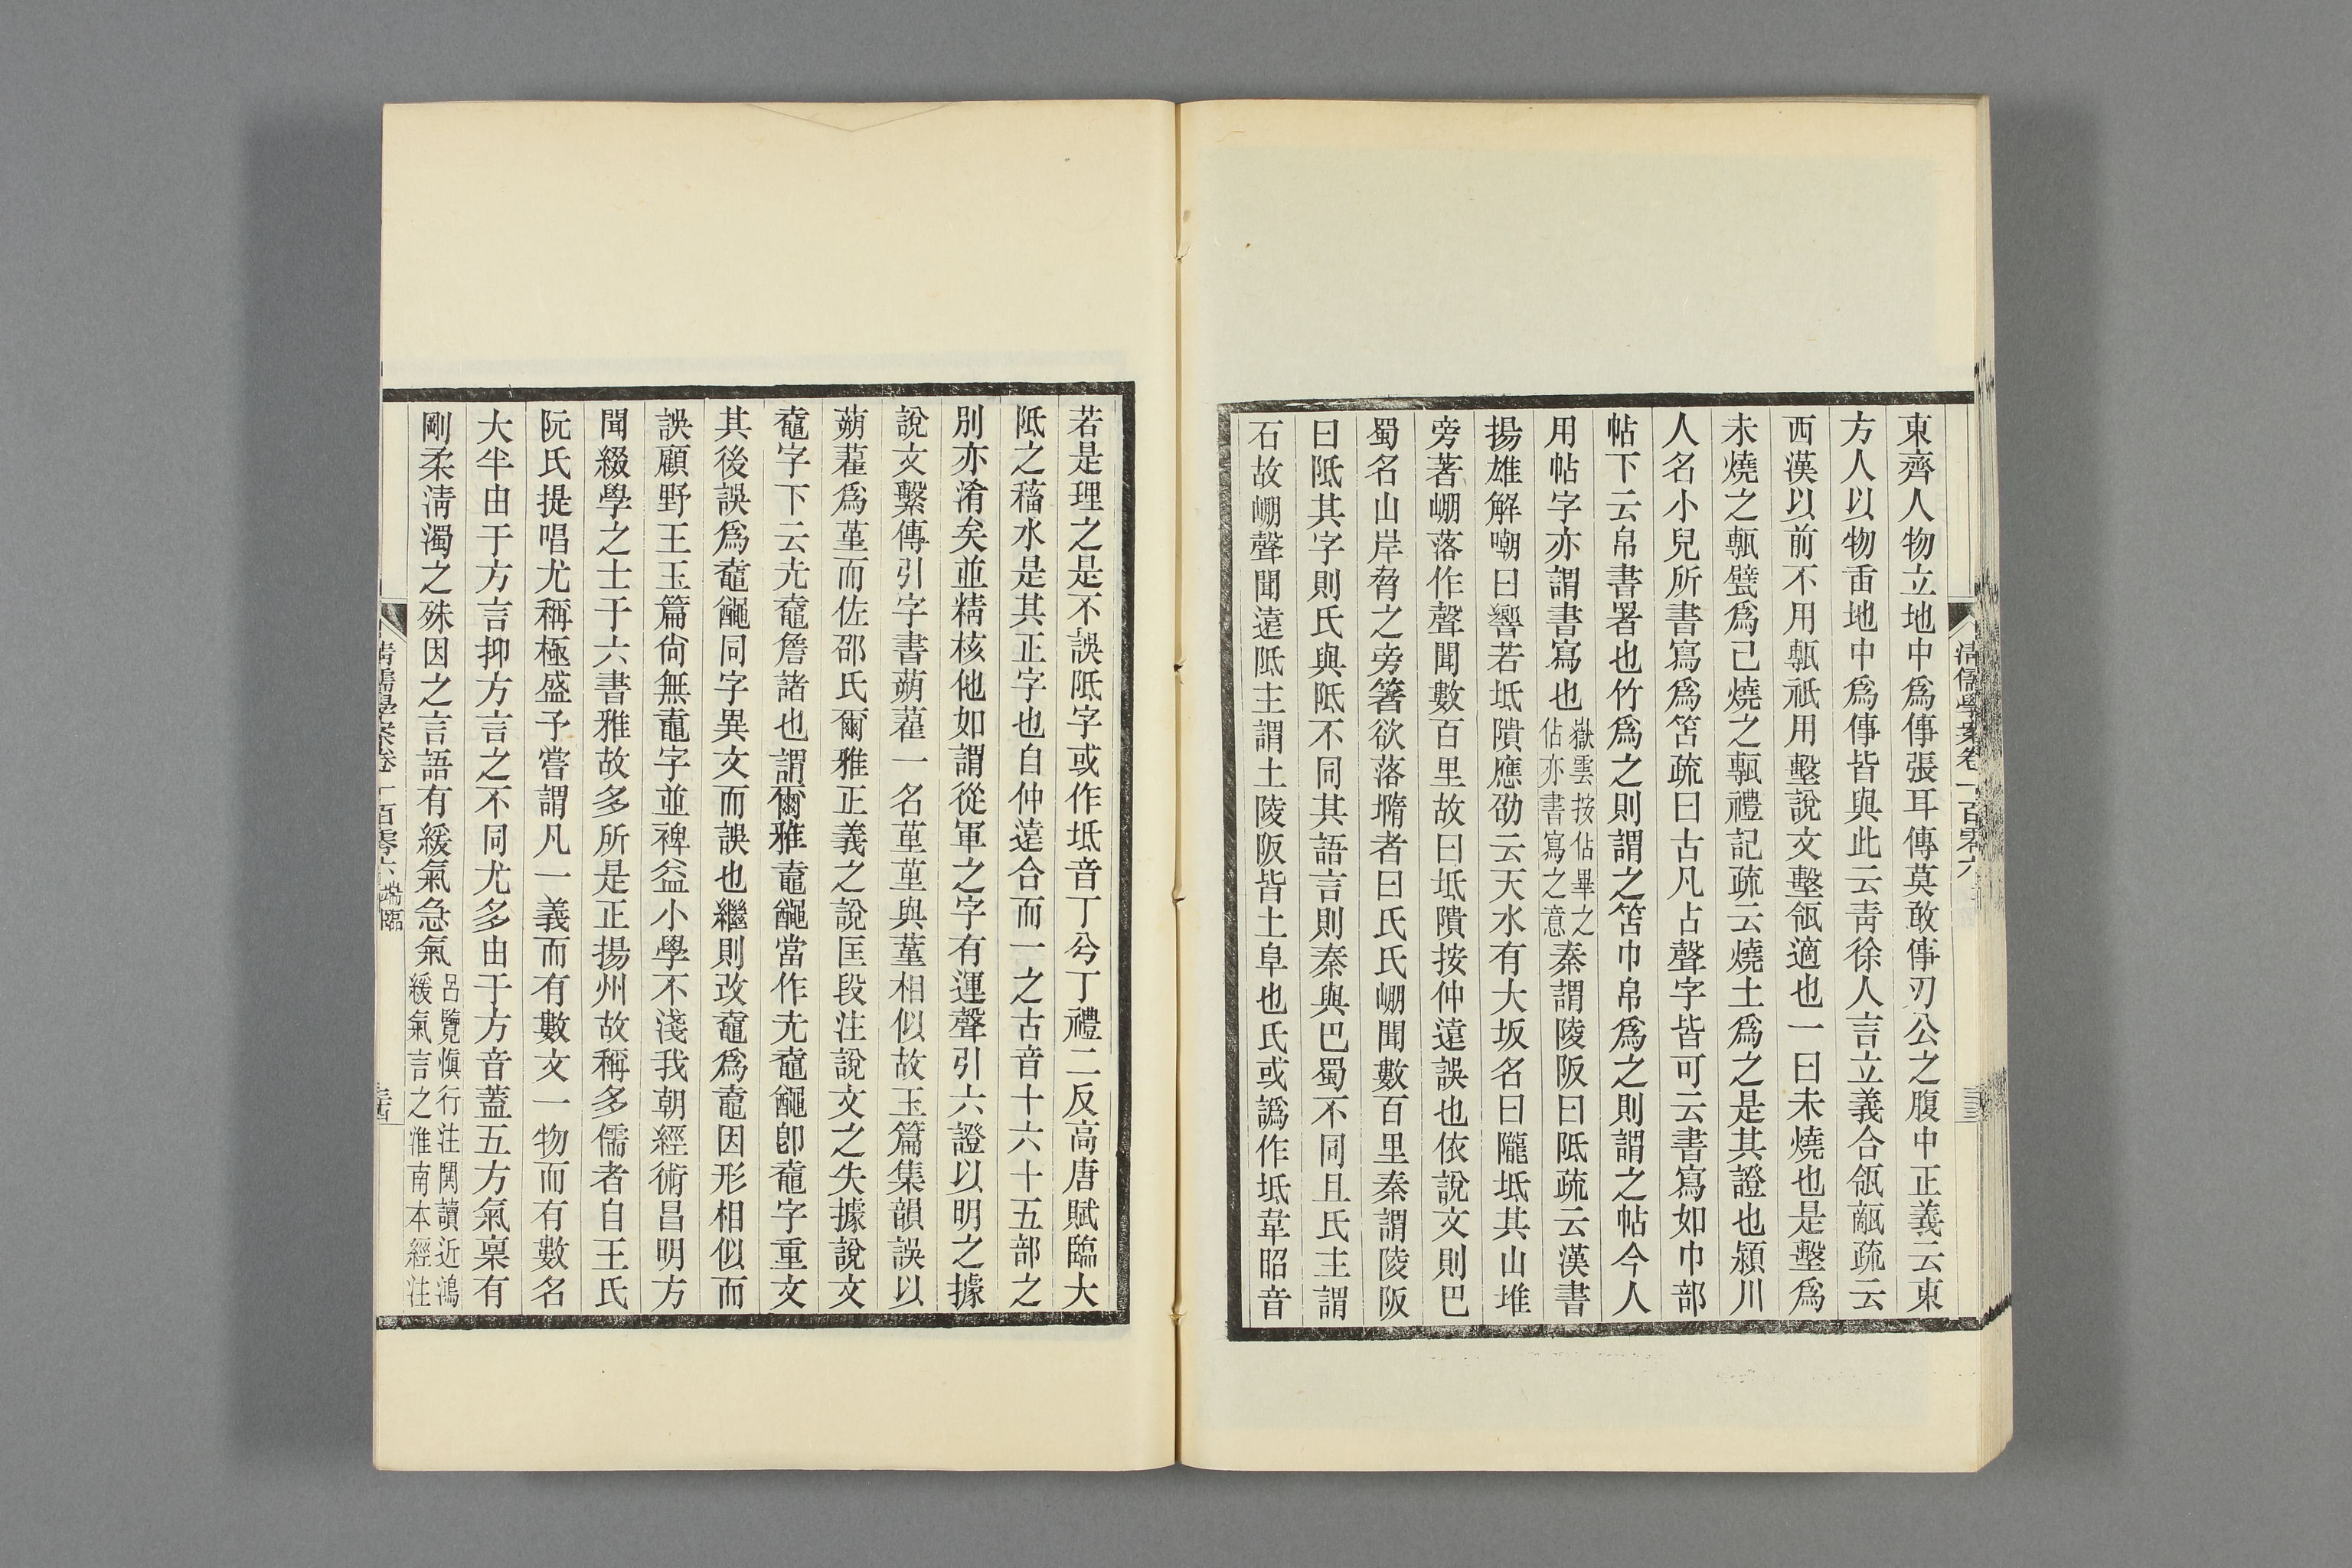 清儒學案卷一百零六
三三
東齊人物立地中爲傳張耳傳莫敢倳刃公之腹中正義云東
方人以物臿地中爲倳皆與此云靑徐人言立義合瓴甋疏云
西漢以前不用甎祇用墼說文墼瓴適也一曰未燒也是墼爲
未燒之甎甓爲已燒之甎禮記疏云燒土爲之是其證也潁川
人名小兒所書寫爲笘疏曰古凡占聲字皆可云書寫如巾部
帖下云帛書署也竹爲之則謂之笘巾帛爲之則謂之帖今人
用帖字亦謂書寫也嶽雲按佔畢之佔亦書寫之意秦謂陵阪曰阺疏云漢書
揚雄解嘲曰響若坻隤應劭云天水有大坂名曰隴坻其山堆
旁著崩落作聲聞數百里故曰坻隤按仲遠誤也依說文則巴
蜀名山岸脅之旁箸欲落墮者曰氏氏崩聞數百里秦謂陵阪
曰阺其字則氏與阺不同其語言則秦與巴蜀不同且氏主謂
石故崩聲聞遠阺主謂土陵阪皆土阜也氏或譌作坻韋昭音
若是理之是不誤阺字或作坻音丁兮丁禮二反高唐賦臨大
阺之稸水是其正字也自仲遠合而一之古音十六十五部之
別亦淆矣並精核他如謂從軍之字有運聲引六證以明之據
說文繫傳引字書蒴藋一名堇堇與蓳相似故玉篇集韻誤以
蒴藋爲堇而佐邵氏爾雅正義之說匡段注說文之失據說文
鼀字下云圥鼀詹諸也謂爾雅鼁𪓰當作圥鼀𪓰卽鼀字重文
其後誤爲鼀𪓰同字異文而誤也繼則改鼀爲鼁因形相似而
誤顧野王玉篇尙無鼁字並裨益小學不淺我朝經術昌明方
聞綴學之士于六書雅故多所是正揚州故稱多儒者自王氏
阮氏提唱尤稱極盛予嘗謂凡一義而有數文一物而有數名
大半由于方言抑方言之不同尤多由于方音蓋五方氣稟有
剛柔淸濁之殊因之言語有緩氣急氣呂覽愼行注鬨讀近鴻緩氣言之淮南本經注
清儒學案卷一百零六 端臨
三四